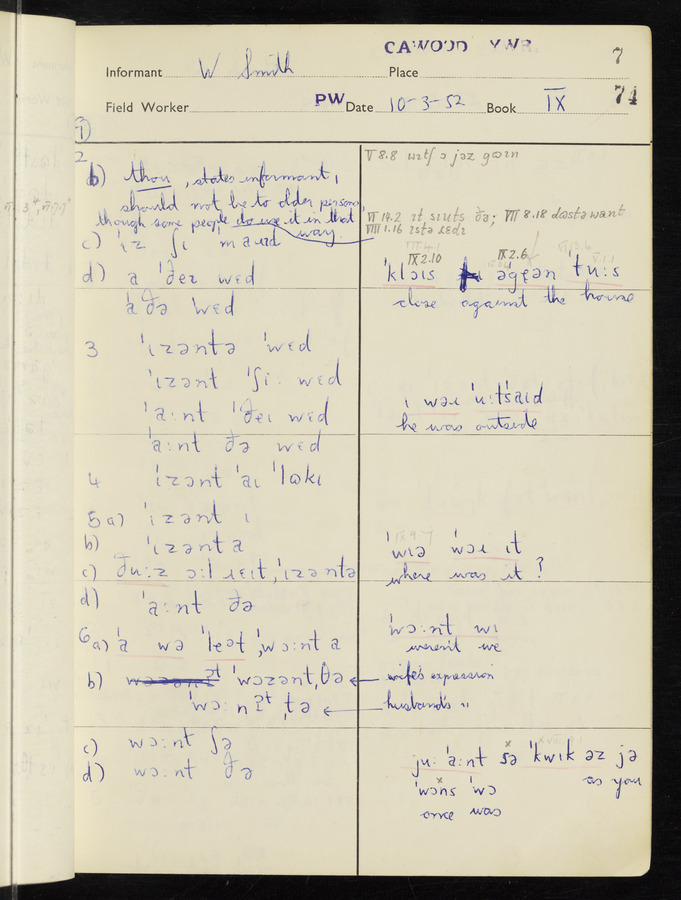 CAWOOD YWR.
7
Informant W Smith Place
Field Worker PW Date 10-3-52 Book IX 74
1
2
b) thou, states informant,
should not be to older persons
though some people do use it in that
way.
c) ˈɪz ʃɪ ˈmaɪɪd
d) a ˈðeɪ wɛd
ˈa ðə ˈwɛd
3 ˈɪzəntə ˈwɛd
ˈɪzənt ˈʃi· wɛd
ˈa:nt ˈðeɪ wɛd
ˈa:nt ðə wɛd
4 ˈɪzənt ˈaɪ ˈlɷkɪ
5 a) ˈɪzənt ɪ
b) ˈɪzənt a
c) ðu:z ɔ:l ɹɛɪt, ˈɪzəntə
d) ˈa:nt ðə
6 a) ˈa wə ˈleət, ˈwɔ:nt a
b) ˈwɔzənt, ðə
ˈwɔ:nʔt, tə
c) wɔ:nt ʃə
d) wɔ:nt ðə
V 8.8 wɪtʃ ə jəz gɷɪn
VI 14.2 ɪt sɪuts ðə; VIII 8.18 dɷstə want
VIII 1.16 ɪstə ɹɛdɪ
IX 2.10 IX 2.6
ˈkləɪs əgɛən ˈtu:s
close against the house
ɪ wəɹ ˈu:tˈsaɪd
he was outside
ˈwɪə ˈwəɹ ɪt
where was it?
ˈwɔ:nt wɪ
weren't we
wife's expression
husband's "
ju: ˈa:nt sə ˈkwɪk əz jə
as you
ˈwɔns ˈwə
once was